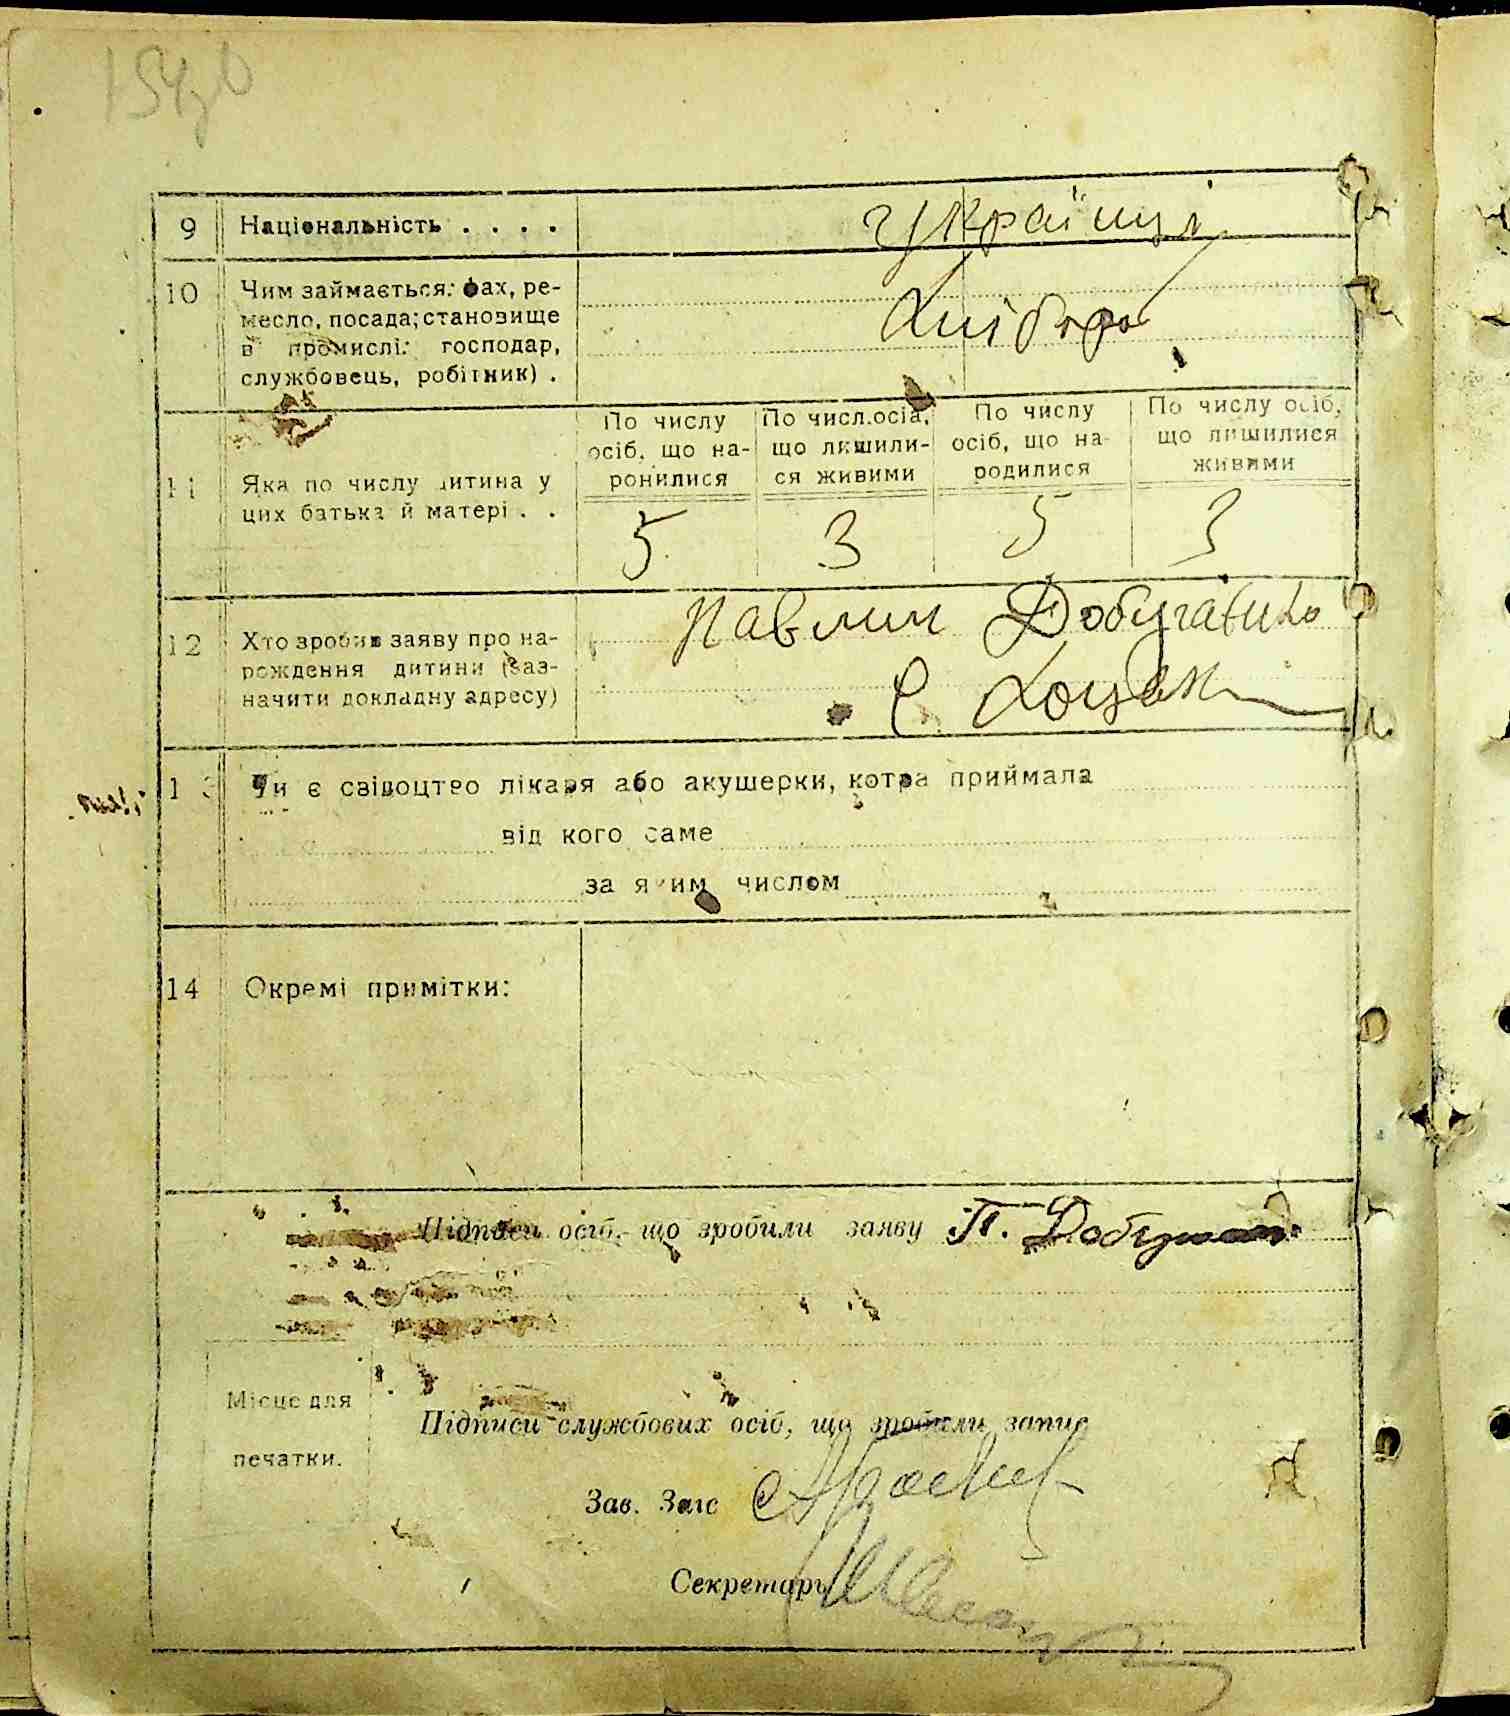 9 Національність . . . . Українці
10 Чим займається: фах, ре-
месло, посада; становище
в промислі: господар,
службовець, робітник) .
Хлібороб
По числу осіб, що на-ронилися
По числ.осіб, що лишили-ся живими
По числу осіб, що на-родилися
По числу осіб, що лишилися живими
11 Яка по числу дитина у
цих батька й матері . .
5 3 5 3
12 Хто зробив заяву про на-
рождення дитини (заз-
начити докладну адресу)
Павлин
С.
13 Чи є свідоцтво лікаря або акушерки, котра приймала
від кого саме
за яким числом
14 Окремі примітки:
Підписи осіб, що зробили заяву П.
Місце для
печатки.
Підписи службових осіб, що зробили запис
Зав. Загс
Секретарь